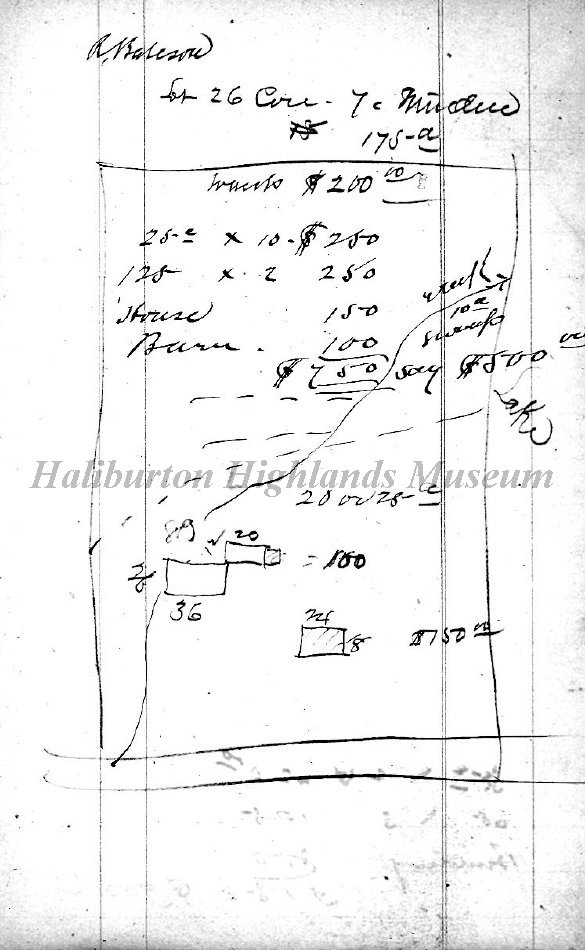 R. Bateson
Lot 26 Con - 7 - Minden
175-a
wants $200 00
25-a x 10 - $250
125 x 2 250
House 150
Barn - 100
$750 say $500 00
creek
10a
swamp
Lake
Haliburton Highlands Museum
20 or 25-a
20
= 100
26
36
24
18
$150 00